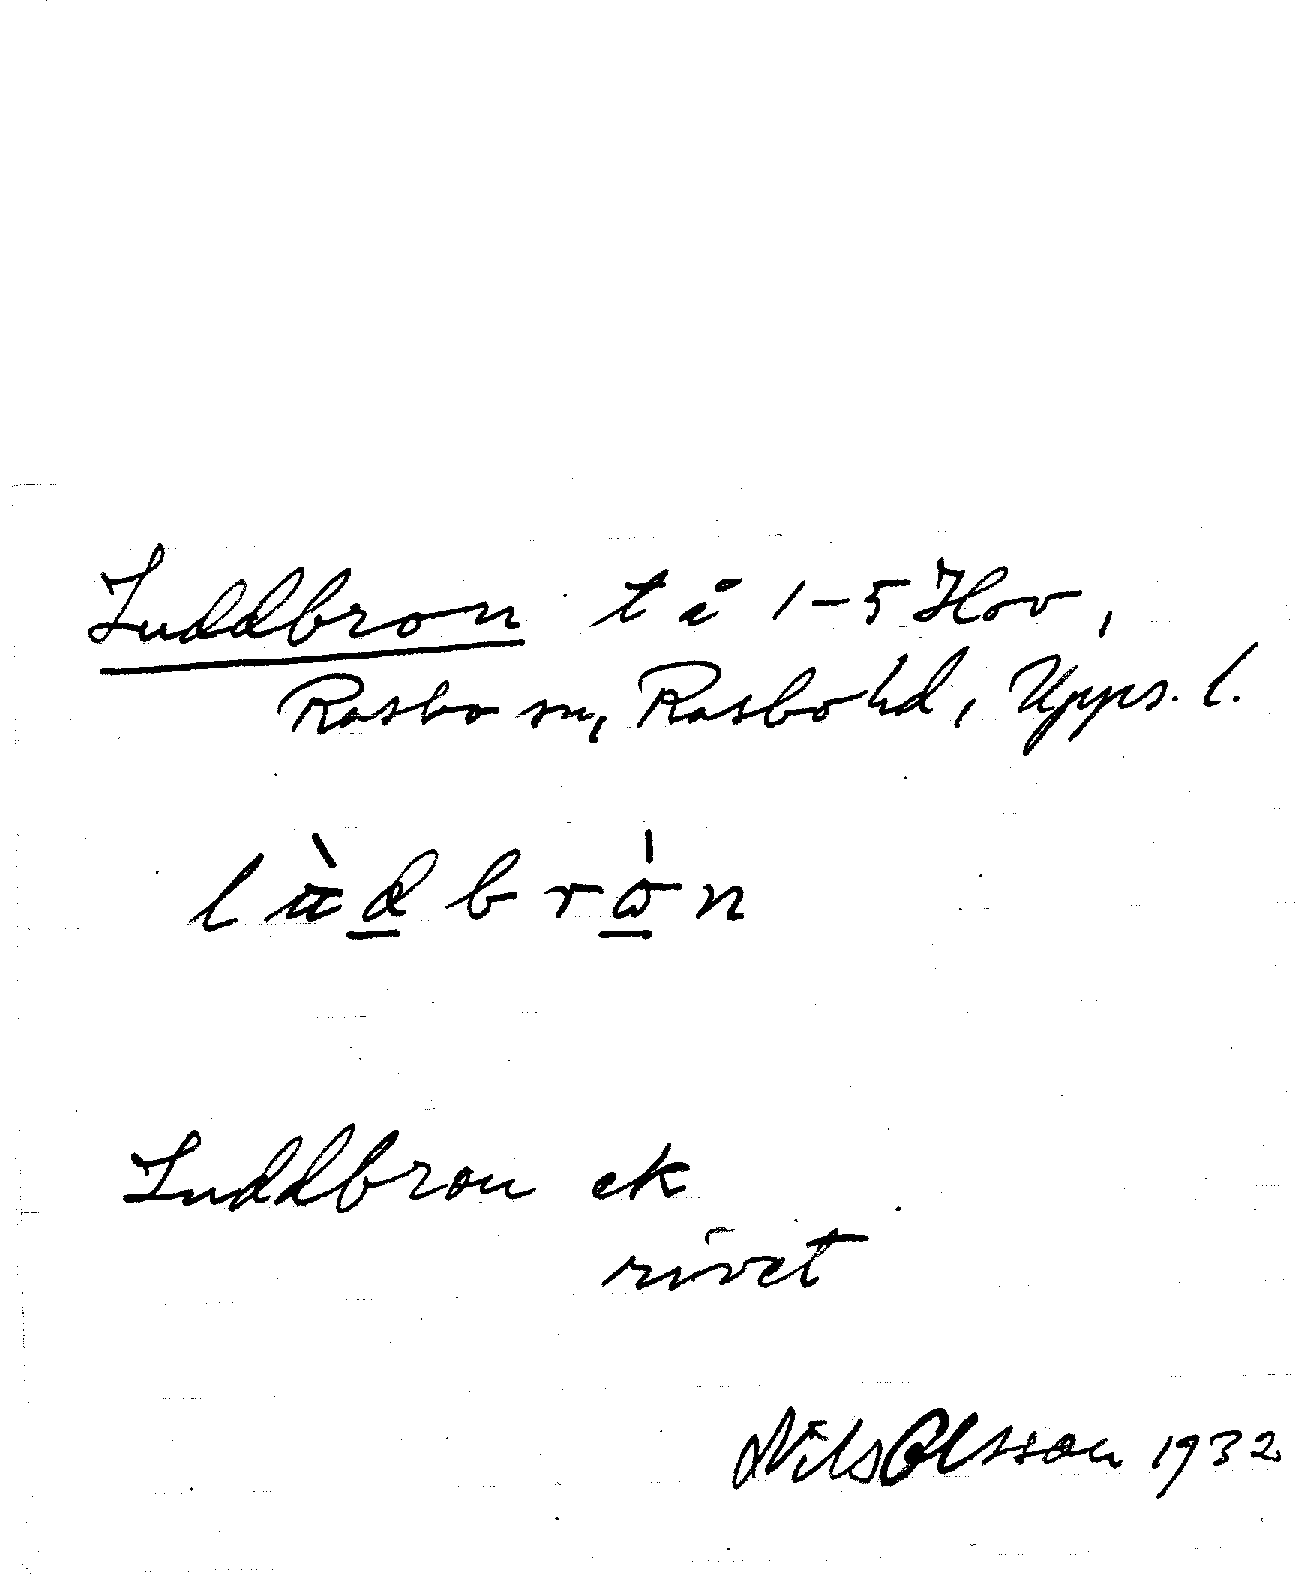 Luddbron tå 1–5 Hov,
Rasbo sn, Rasbo hd, Upps. l.
lùdbrò̲n
Luddbron ek
rivet
Nils Olsson 1932